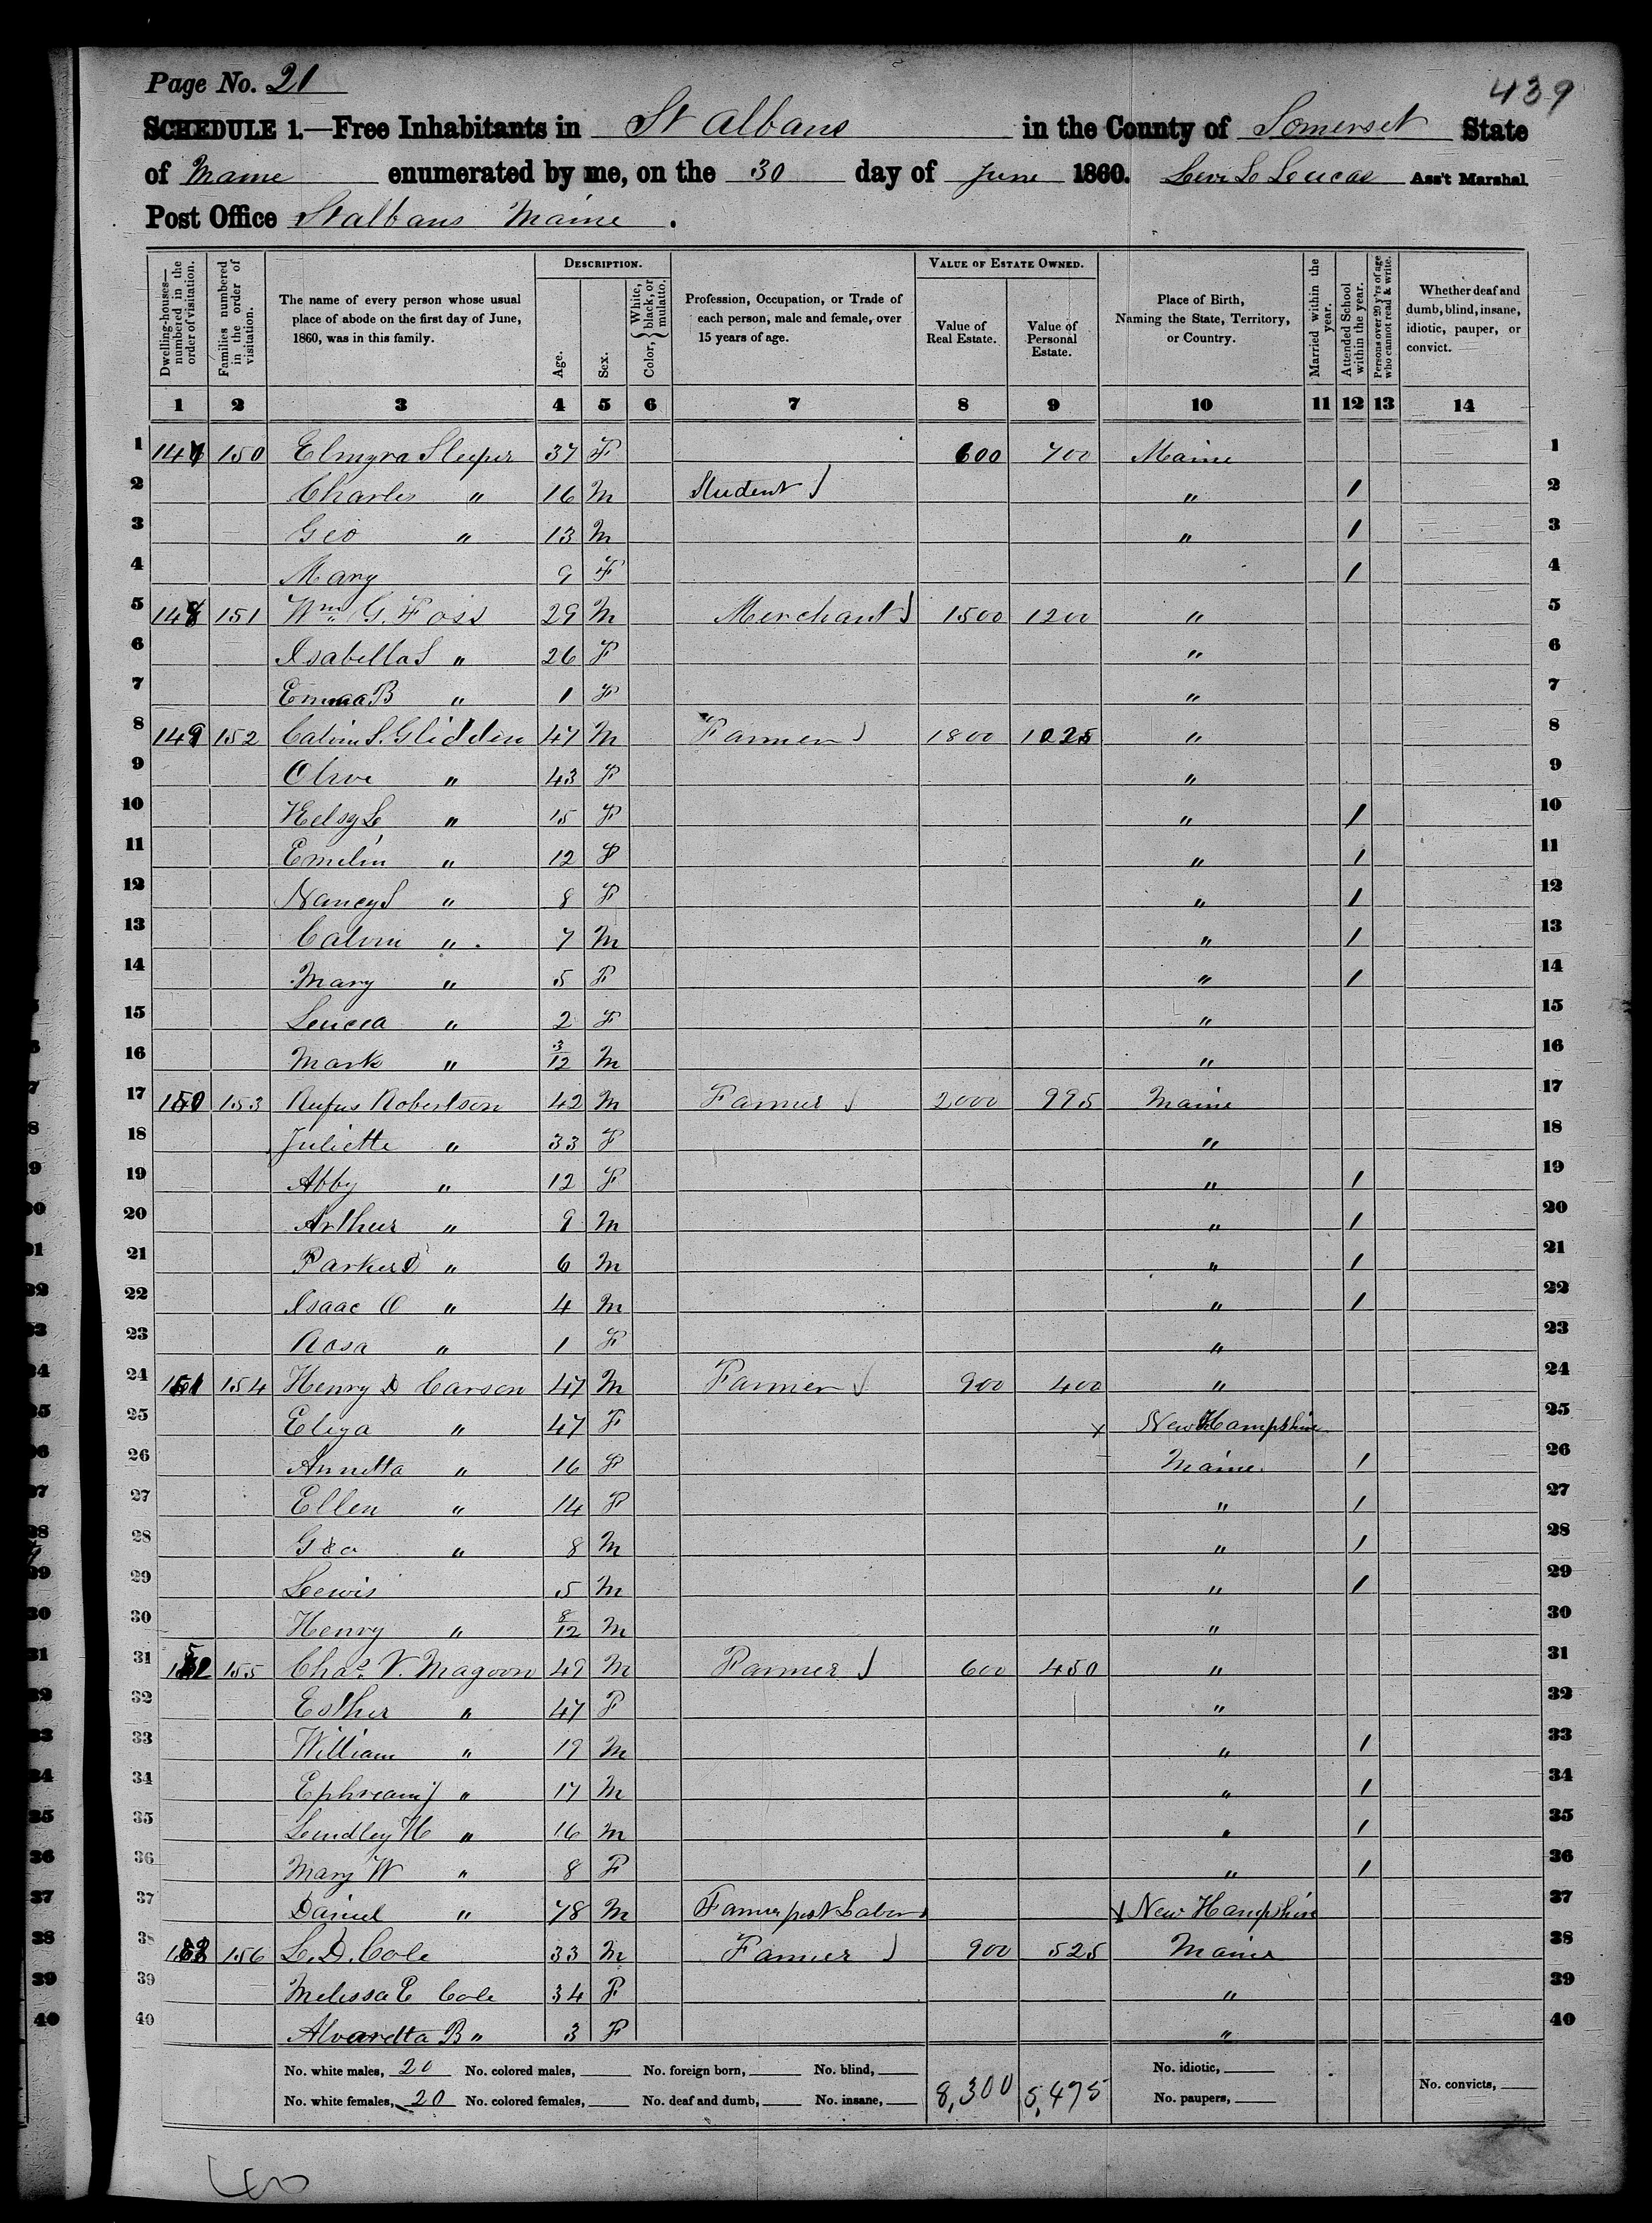 Page No. 21
439
SCHEDULE 1.—Free Inhabitants in St Albans in the County of Somerset State
of Maine enumerated by me, on the 30 day of June 1860. Levi L Lucas Ass't Marshal
Post Office St albans Maine.
Dwelling-houses—numbered in the order of visitation.
Families numbered in the order of visitation.
The name of every person whose usual place of abode on the first day of June, 1860, was in this family.
DESCRIPTION.
Age.
Sex.
Color, { White, black, or mulatto.
Profession, Occupation, or Trade of each person, male and female, over 15 years of age.
VALUE OF ESTATE OWNED.
Value of Real Estate.
Value of Personal Estate.
Place of Birth, Naming the State, Territory, or Country.
Married within the year.
Attended School within the year.
Persons over 20 y'rs of age who cannot read & write.
Whether deaf and dumb, blind, insane, idiotic, pauper, or convict.
1 2 3 4 5 6 7 8 9 10 11 12 13 14
1 147 150 Elmyra Sleeper 37 F 600 700 Maine 1
2 Charles " 16 M Student " 1 2
3 Geo " 13 M " 1 3
4 Mary 9 F 1 4
5 148 151 Wm G. Foss 29 M Merchant 1500 1200 " 5
6 Isabella S " 26 F " 6
7 Emma B " 1 F " 7
8 149 152 Calvin S. Glidden 47 M Farmer 1800 1025 " 8
9 Olive " 43 F " 9
10 Helsy L " 15 F " 1 10
11 Emelin " 12 F " 1 11
12 Nancy S " 8 F " 1 12
13 Calvin " 7 M " 1 13
14 Mary " 5 F " 1 14
15 Leucea " 2 F " 15
16 Mark " 3/12 M " 16
17 150 153 Rufus Robertson 42 M Farmer 2000 995 Maine 17
18 Juliette " 33 F " 18
19 Abby " 12 F " 1 19
20 Arthur " 9 M " 1 20
21 Parker D " 6 M " 1 21
22 Isaac O " 4 M " 1 22
23 Rosa " 1 F " 23
24 151 154 Henry D Carson 47 M Farmer 900 400 " 24
25 Eliza " 47 F x New Hampshire 25
26 Annetta " 16 F Maine 1 26
27 Ellen " 14 F " 1 27
28 Geo " 8 M " 1 28
29 Lewis 5 M " 1 29
30 Henry " 8/12 M " 30
31 152 155 Chas. V. Magoon 49 M Farmer 600 450 " 31
32 Esther " 47 F " 32
33 William " 19 M " 1 33
34 Ephream " 17 M " 1 34
35 Lendley H " 16 M " 1 35
36 Mary W " 8 F " 1 36
37 Daniel " 78 M Farmer past Labor x New Hampshire 37
38 153 156 L. D. Cole 33 M Farmer 900 525 Maine 38
39 Melissa E Cole 34 F " 39
40 Alvaretta B " 3 F " 40
No. white males, 20 No. colored males, No. foreign born, No. blind, No. idiotic,
No. white females, 20 No. colored females, No. deaf and dumb, No. insane, 8,300 5,495 No. paupers, No. convicts,
40